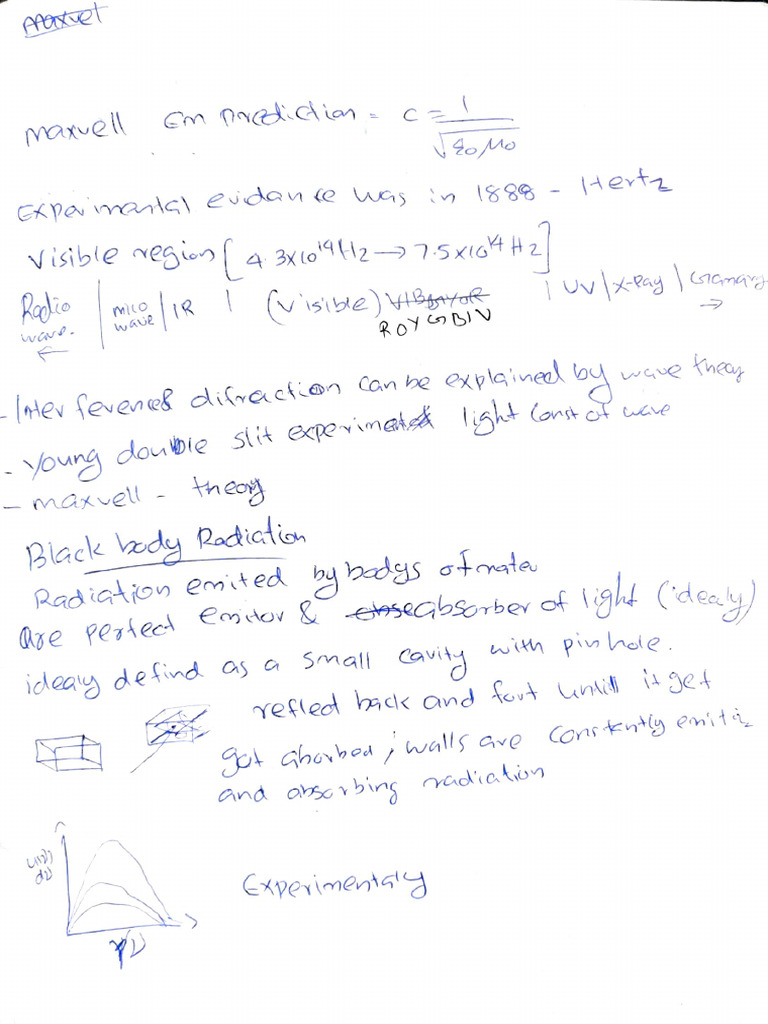 maxvell Em prediction = c = 1/√ε0 μ0
Experimental evidance was in 1888 - Hertz
Visible region [4.3x10^14 Hz → 7.5x10^14 Hz]
Radio wave. ← | mico wave | IR | (Visible) ROYGBIV | UV | X-Ray | Gamary →
- Inter ferences difraction can be explained by wave theory
- Young double slit experiment light const of wave
- maxvell - theory
Black body Radiation
Radiation emited by bodys of mater
are perfect emitor & absorber of light (idealy)
idealy defind as a small cavity with pinhole.
refled back and fort untill it get
got aborbed; walls are constently emiting
and absorbing radiation
Experimentaly